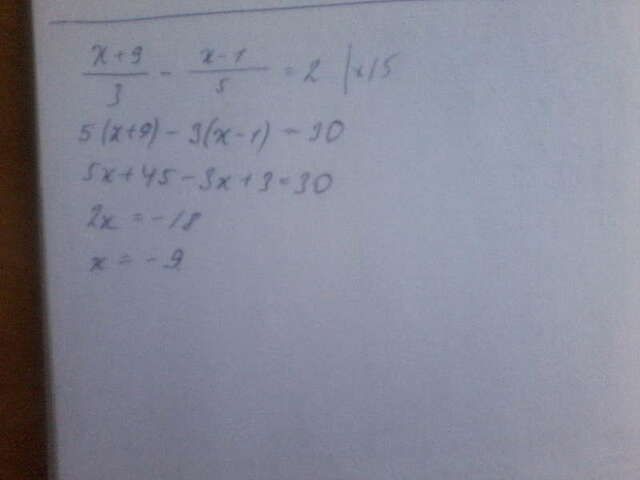 x+9/3 - x-1/5 = 2 |x15
5(x+9) - 3(x-1) = 30
5x+45-3x+3=30
2x = -18
x = -9